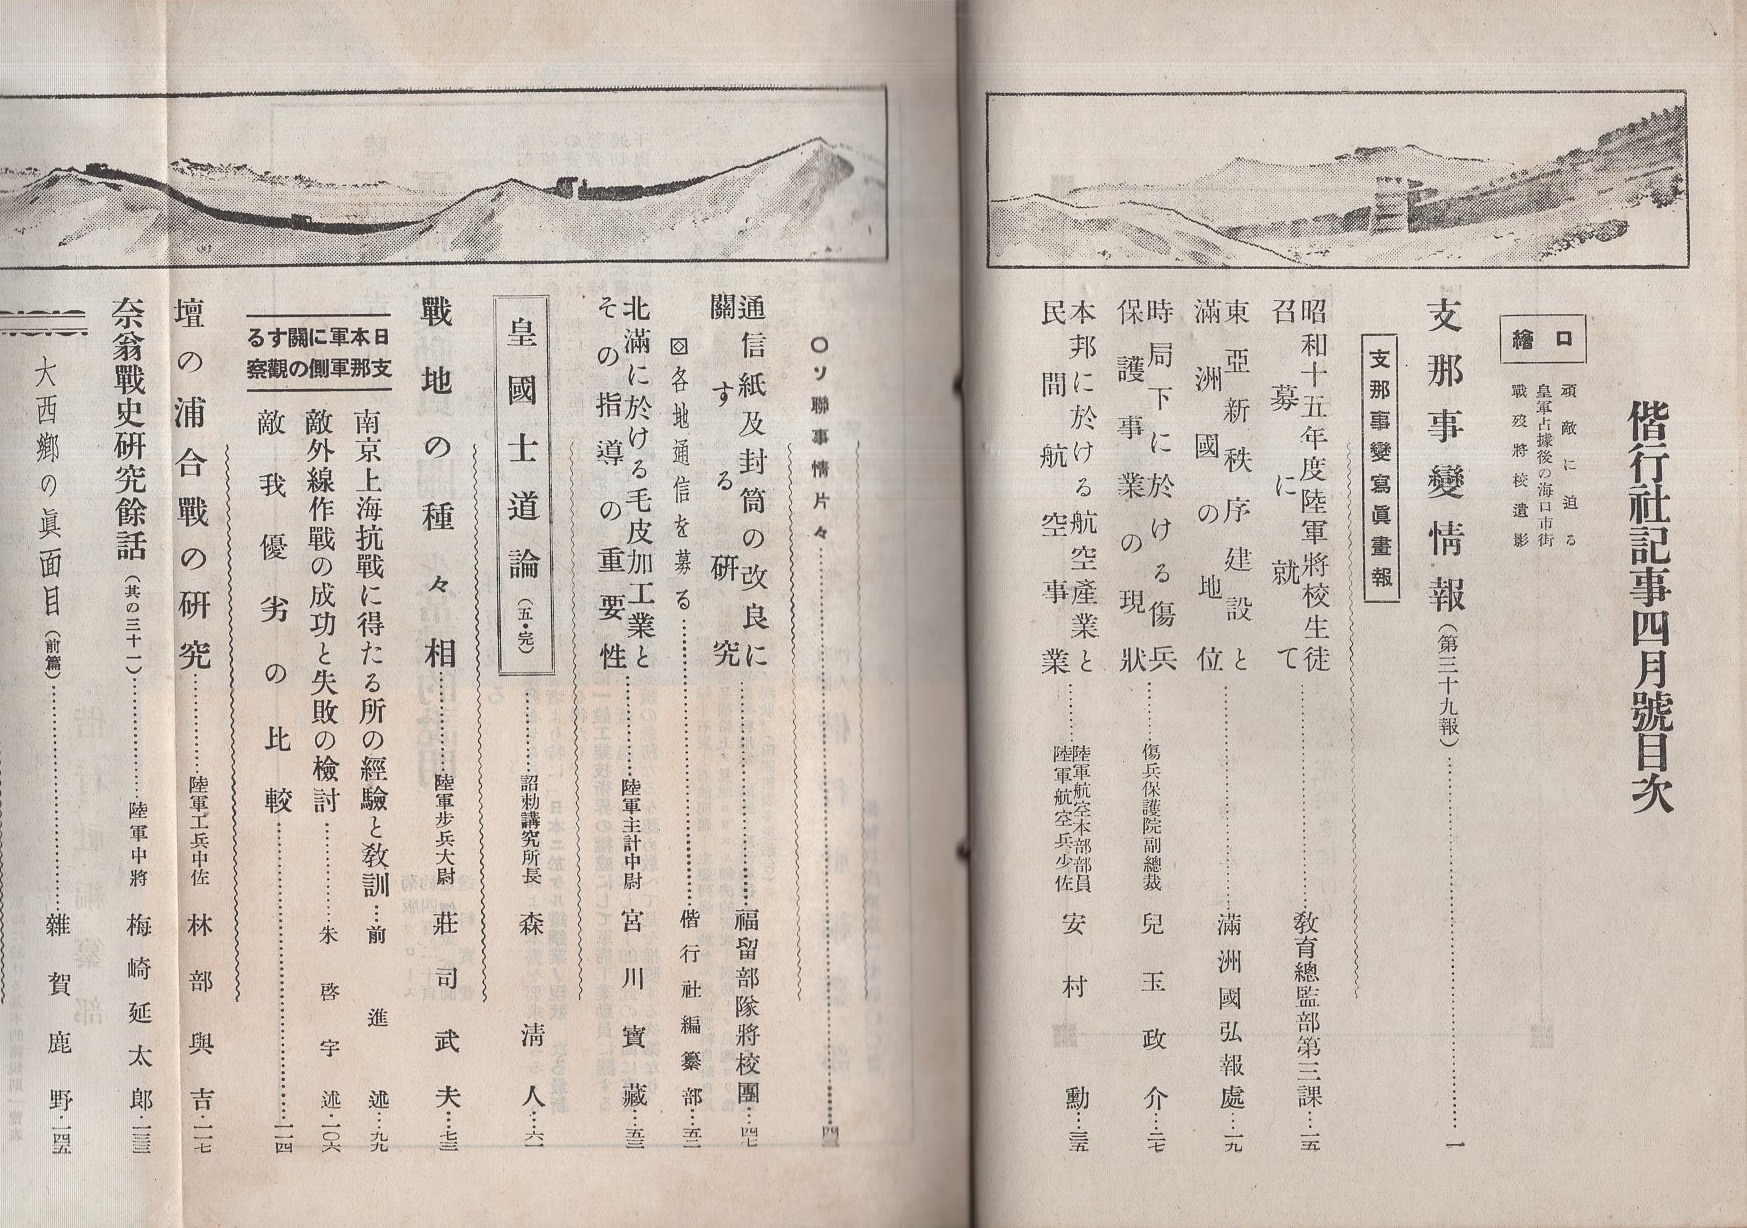 偕行社記事四月號目次
口繪
頑敵に迫る
皇軍占據後の海口市街
戰歿將校遺影
支那事變情報(第三十九報)…一
支那事變寫眞畫報
昭和十五年度陸軍將校生徒
召募に就て…敎育總監部第三課…一五
東亞新秩序建設と
滿洲國の地位…滿洲國弘報處…一九
時局下に於ける傷兵
保護事業の現狀…傷兵保護院副總裁 兒玉政介…二七
本邦に於ける航空產業と
民間航空事業…陸軍航空本部部員
陸軍航空兵少佐 安村勳…三五
〇ソ聯事情片々
通信紙及封筒の改良に
關する硏究…福留部隊將校團…四七
回各地通信を募る…偕行社編纂部…五二
北滿に於ける毛皮加工業と
その指導の重要性…陸軍主計中尉 宮川寶藏…五三
皇國士道論(五・完)…詔勅講究所長 森淸人…六一
戰地の種々相…陸軍步兵大尉 莊司武夫…七三
日本軍に關する
支那軍側の觀察
南京上海抗戰に得たる所の經驗と敎訓…前進述…九九
敵外線作戰の成功と失敗の檢討…朱啓宇述…一〇六
敵我優劣の比較…一一四
壇の浦合戰の硏究…陸軍工兵中佐 林部與吉…一一七
奈翁戰史硏究餘話(其の三十一)…陸軍中將 梅崎延太郎…一三三
大西鄕の眞面目(前篇)…雜賀鹿野…一四五